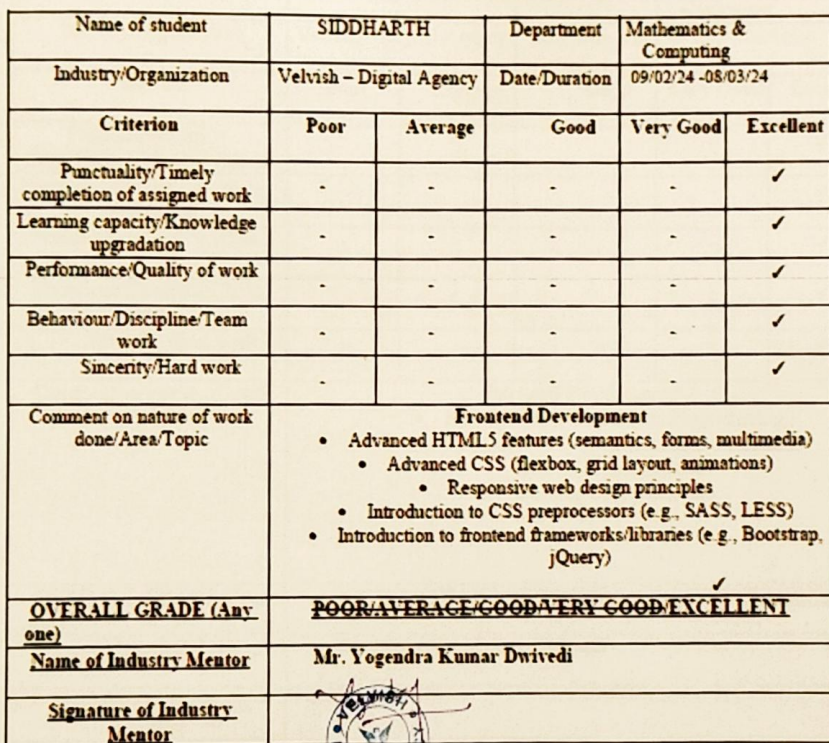 Name of student SIDDHARTH Department Mathematics &
Computing
Industry/Organization Velvish – Digital Agency Date/Duration 09/02/24 -08/03/24
Criterion Poor Average Good Very Good Excellent
Punctuality/Timely
completion of assigned work - - - - ✓
Learning capacity/Knowledge
upgradation - - - - ✓
Performance/Quality of work - - - - ✓
Behaviour/Discipline/Team
work - - - - ✓
Sincerity/Hard work - - - - ✓
Comment on nature of work
done/Area/Topic
Frontend Development
• Advanced HTML5 features (semantics, forms, multimedia)
• Advanced CSS (flexbox, grid layout, animations)
• Responsive web design principles
• Introduction to CSS preprocessors (e.g., SASS, LESS)
• Introduction to frontend frameworks/libraries (e.g., Bootstrap,
jQuery)
✓
OVERALL GRADE (Any
one)
POOR/AVERAGE/GOOD/VERY GOOD/EXCELLENT
Name of Industry Mentor Mr. Yogendra Kumar Dwivedi
Signature of Industry
Mentor
VELVISH